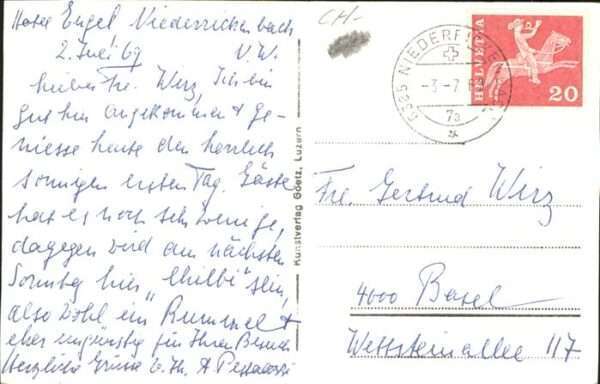 Hotel Engel, Niederrickenbach
2. Juli 69 N.W.
Liebes Frl. Wirz, Ich bin
gut hier angekommen & ge-
niesse heute den herrlich
sonnigen ersten Tag. Gäste
hat es noch sehr wenige,
dagegen wird am nächsten
Sonntag hier „Chilbi" sein,
also wohl ein Rummel &
eher ungünstig für Ihren Besuch
Herzliche Grüsse v. Ihr. A
Kunstverlag Goetz, Luzern
CH-
6385 NIEDERRICKENBACH
-3.-7.69
7a
HELVETIA
20
Frl. Gertrud Wirz
4000 Basel
Wettsteinallee 117